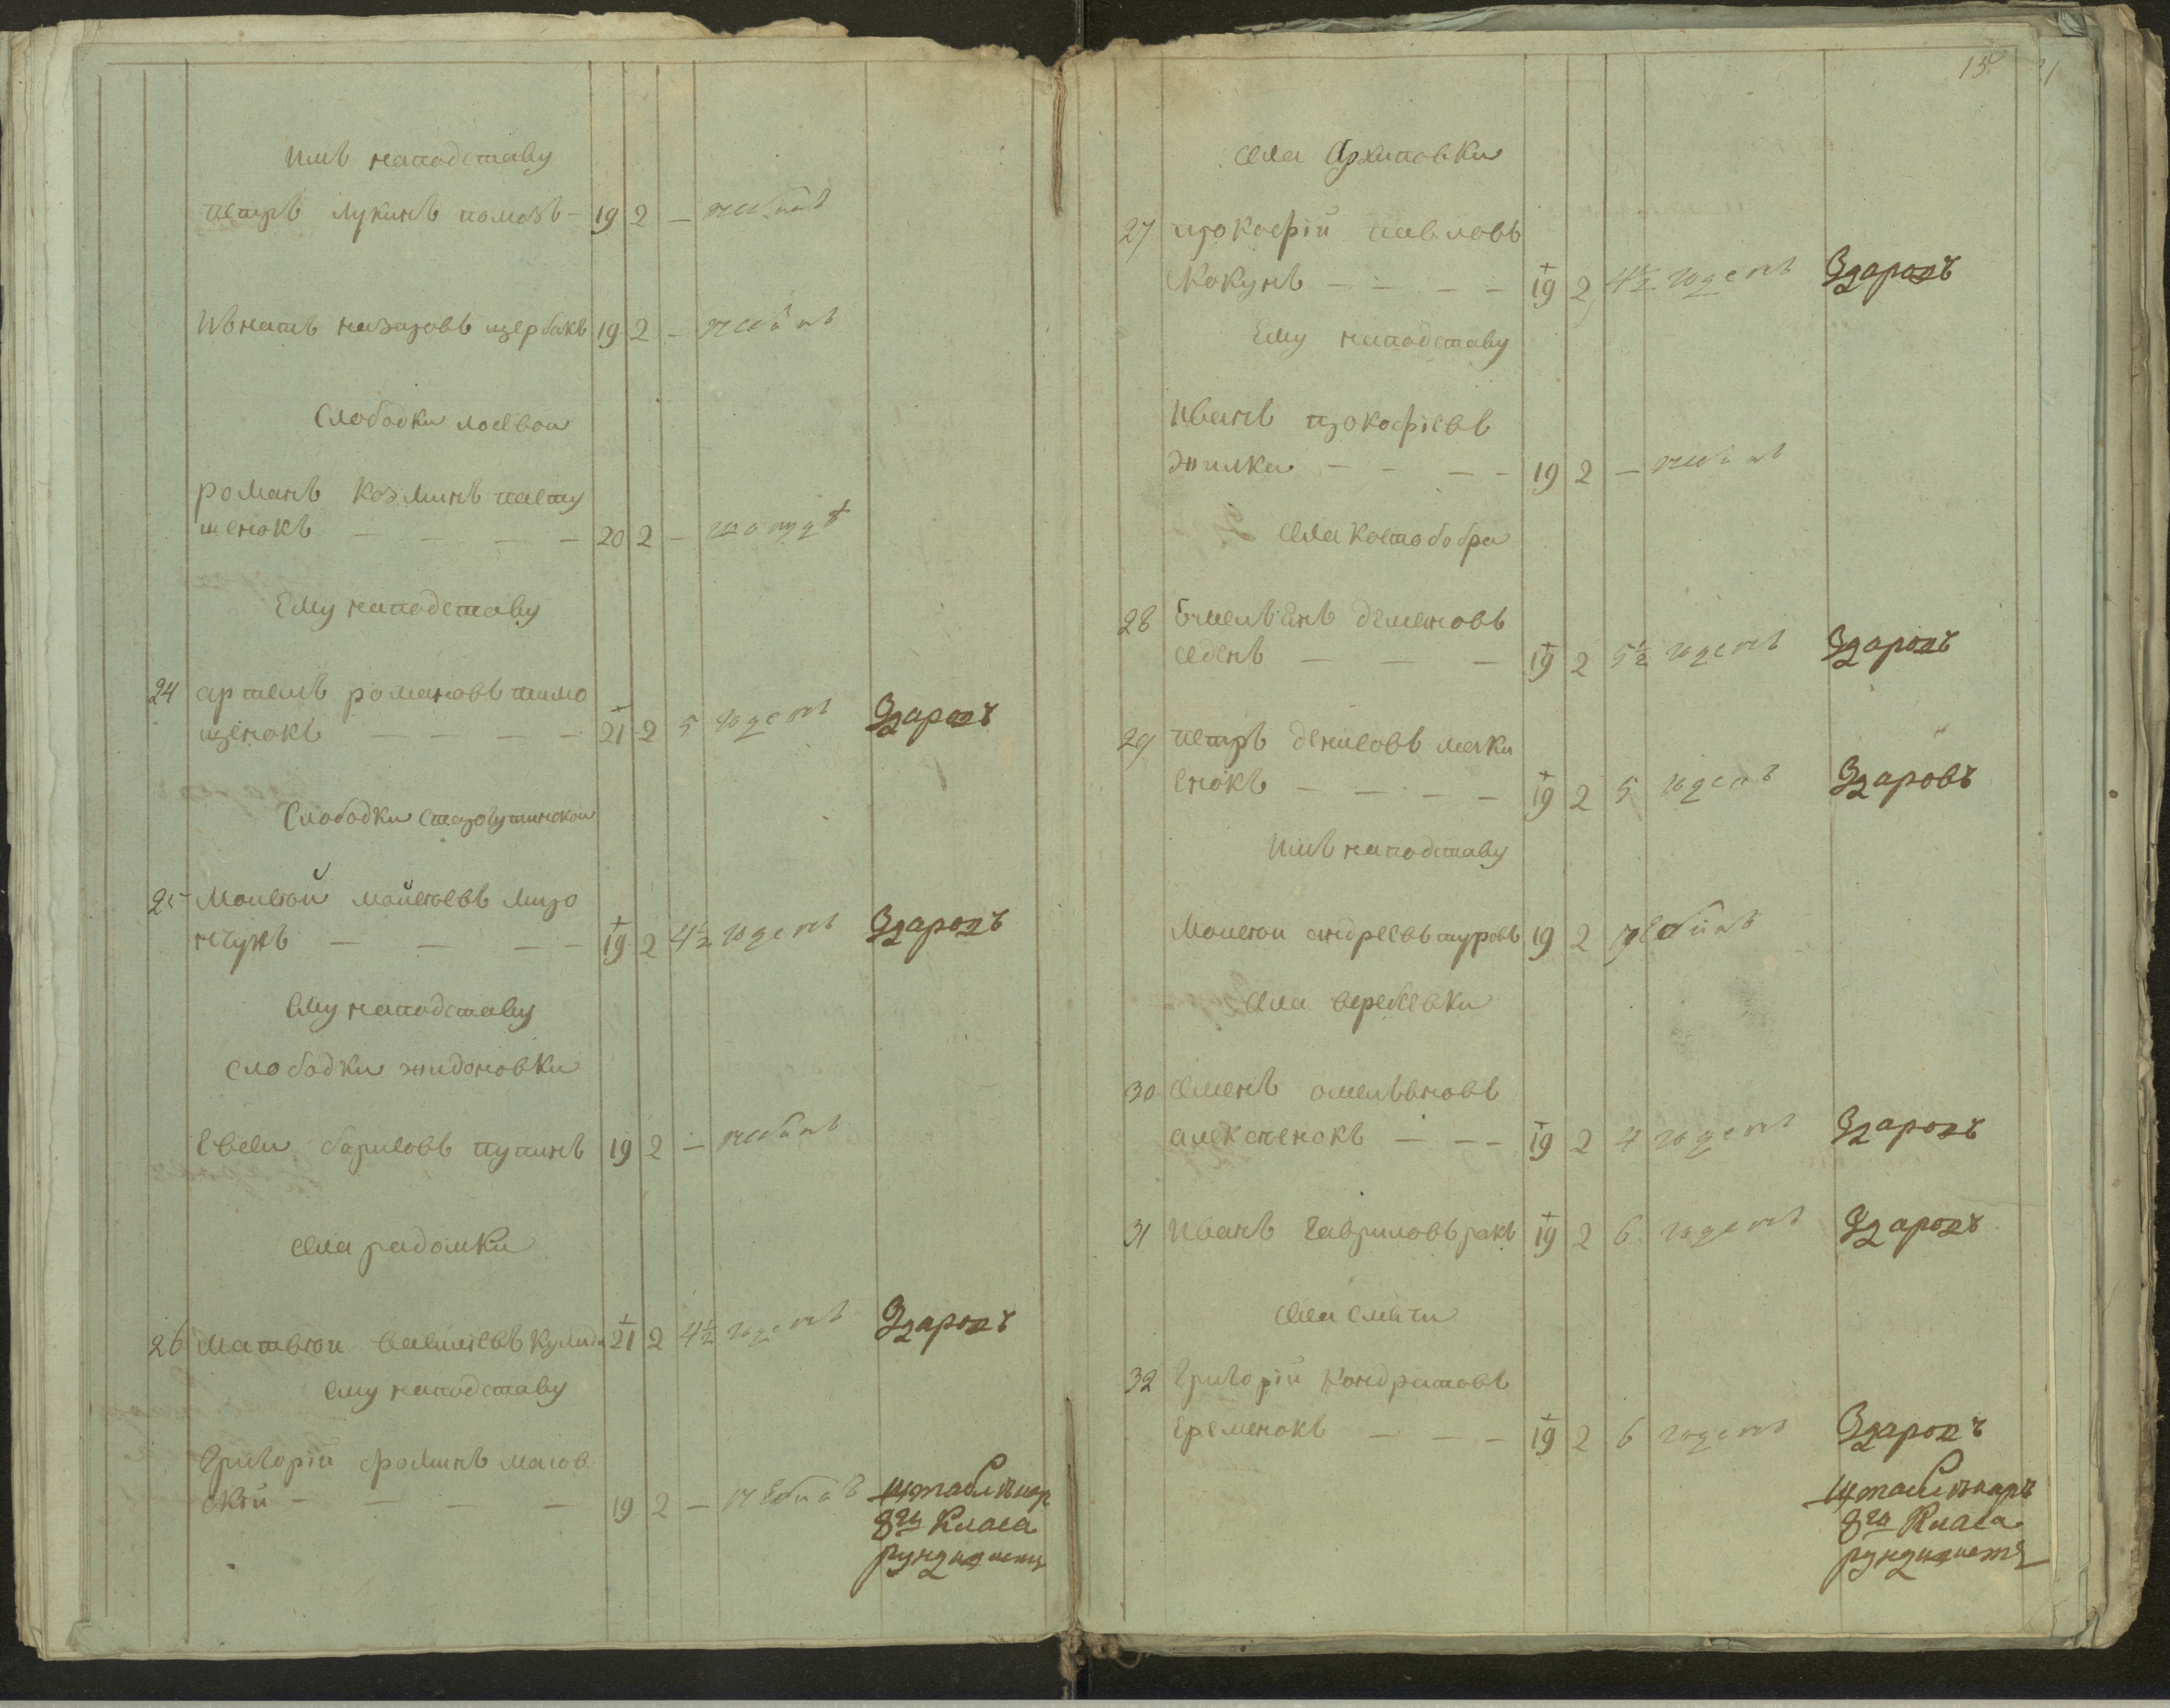 имъ наподставу
петръ лукинъ помазъ — 19 2 — небылъ
Игнатъ назаровъ щербакъ 19 2 — небылъ
Слободки лосевои
романъ козминъ пасту
шенокъ — — — — 20 2 —
Ему наподставу
24 артемъ романовъ тимо
щенокъ — — — — 21 2 5 годенъ Здаровъ
Слободки
25 Моисей мойсеевъ миро
нчукъ — — — — 19 2 4½ годенъ Здаровъ
ему наподставу
слободки жидоновки
Евсеи борисовъ пупинъ 19 2 — небылъ
села радомки
26 Матвеи василевъ 21 2 4½ годенъ Здаровъ
ему наподставу
Григорій фоминъ масов
скій — — — — 19 2 — небылъ штаблѣкар
8го Класа
15
села Архиповки
27 прокофій павловъ
Кокунъ — — — — 19 2 4½ годенъ Здаровъ
Ему наподставу
Иванъ прокофіевъ
жилка — — — — 19 2 — небылъ
села костобобра
28 Емельянъ деменовъ
седенъ — — — 19 2 5½ годенъ Здаровъ
29 петръ денисовъ маки
енокъ — — — — 19 2 5 годенъ Здаровъ
имъ наподставу
Моисеи андреевъ туровъ 19 2 небылъ
села веребевки
30 семенъ омеляновъ
алексеенокъ — — — 19 2 4 годенъ Здаровъ
31 Иванъ Гавриловъ ракъ 19 2 6 годенъ Здаровъ
села смячи
32 Григорій Кондратовъ
еременокъ — — — 19 2 6 годенъ Здаровъ
штаблѣкаръ
8го Класа